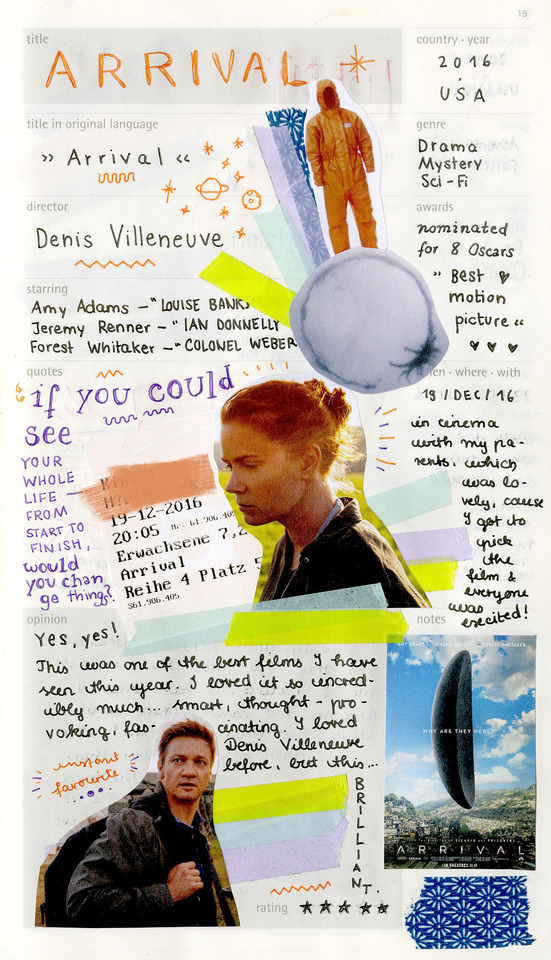 19
title
ARRIVAL
country · year
2016
USA
title in original language
" Arrival "
genre
Drama
Mystery
Sci-Fi
director
Denis Villeneuve
awards
nominated
for 8 Oscars
" Best
motion
picture "
starring
Amy Adams – "LOUISE BANKS
Jeremy Renner – "IAN DONNELLY
Forest Whitaker – "COLONEL WEBER
quotes
"if you could
see
YOUR
WHOLE
LIFE
FROM
START TO
FINISH,
would
you chan
ge things?
19-12-2016
20:05 Nr. 61.906.405
Erwachsene 7,2
Arrival
Reihe 4 Platz
S61.906.405
en · where · with
19/DEC/16
in cinema
with my pa-
rents, which
was lo-
vely, cause
I got to
pick
the
film &
everyone
was excited!
opinion
Yes, yes!
This was one of the best films I have
seen this year. I loved it so incred-
ibly much... smart, thought-pro-
voking, fas- cinating. I loved
Denis Villeneuve
before, but this...
BRILLIANT.
instant
favourite
rating
notes
AMY ADAMS JEREMY RENNER FOREST WHITAKER
WHY ARE THEY HERE?
ARRIVAL
IN THEATRES 11.11